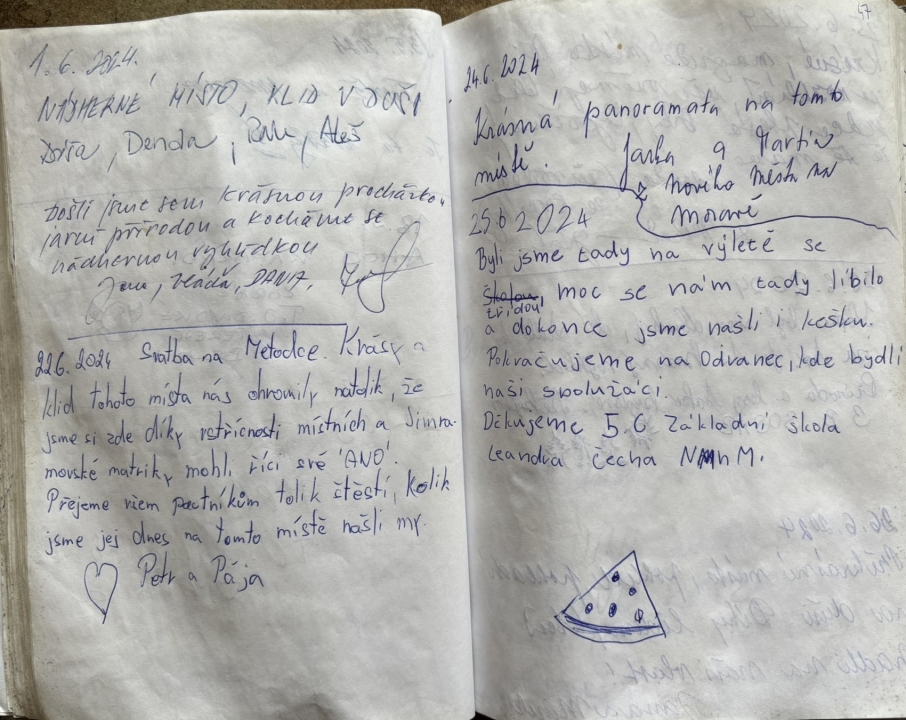 1. 6. 2024.
NÁDHERNÉ MÍSTO, KLID V DUŠI
Dáša, Denda, Aleš
Došli jsme sem krásnou procházkou,
jarní přírodou a kocháme se
nádhernou vyhlídkou
Jana, Vláďa, DANA,
22.6. 2024 Svatba na Metodce. Krásy a
klid tohoto místa nás ohromily natolik, že
jsme si zde díky vstřícnosti místních a Simra-
movské matriky mohli říci své 'ANO'.
Přejeme všem poutníkům tolik štěstí, kolik
jsme jej dnes na tomto místě našli my.
Petr a Pája
47
24.6. 2024
Krásná panoramata na tomto
místě. Jarka a Martin
z Nového Města na
Moravě
25 6 2024
Byli jsme tady na výletě se
školou, moc se nám tady líbilo
třídou
a dokonce jsme našli i kešku.
Pokračujeme na Odranec, kde bydlí
naši spolužáci.
Děkujeme 5.C Základní škola
Leandra Čecha NMnM.